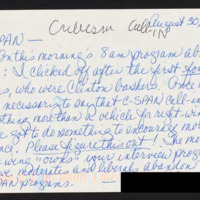 Criticism Call-IN
August 30,
PAN —
On this morning's 8 am program ab
: I clicked off after the first four
s, who were Clinton bashers. Once
necessary to say that C-SPAN Call-in
thing more than a vehicle for right-win
've got to do something to encourage more
nce: Please figure this out! The mo
wing "owks" your interview prog
ve moderates and liberal abandon
PAN programs.